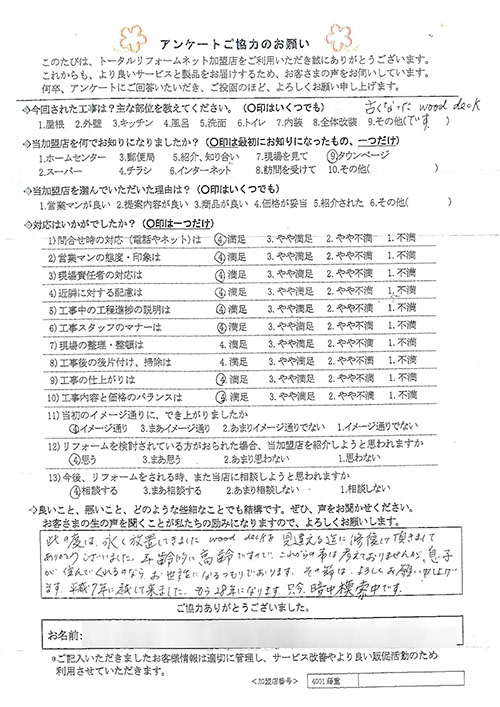 アンケートご協力のお願い
このたびは、トータルリフォームネット加盟店をご利用いただき誠にありがとうございます。
これからも、より良いサービスと製品をお届けするため、お客さまの声をお伺いしています。
何卒、アンケートにご回答いただき、ご投函のほど、よろしくお願い申し上げます。
今回された工事は?主な部位を教えてください。(〇印はいくつでも) 古くなった wood deck
1.屋根 2.外壁 3.キッチン 4.風呂 5.洗面 6.トイレ 7.内装 8.全体改装 9.その他(です。)
当加盟店を何でお知りになりましたか?(〇印は最初にお知りになったもの、一つだけ)
1.ホームセンター 3.郵便局 5.紹介、知り合い 7.現場を見て ⑨タウンページ
2.スーパー 4.チラシ 6.インターネット 8.訪問を受けて 10.その他( )
当加盟店を選んでいただいた理由は?(〇印はいくつでも)
1.営業マンが良い 2.提案内容が良い 3.商品が良い 4.価格が妥当 5.紹介された 6.その他( )
対応はいかがでしたか?(〇印は一つだけ)
1)問合せ時の対応(電話やネット)は ④満足 3.やや満足 2.やや不満 1.不満
2)営業マンの態度・印象は ④満足 3.やや満足 2.やや不満 1.不満
3)現場責任者の対応は ④満足 3.やや満足 2.やや不満 1.不満
4)近隣に対する配慮は ④満足 3.やや満足 2.やや不満 1.不満
5)工事中の工程進捗の説明は ④満足 3.やや満足 2.やや不満 1.不満
6)工事スタッフのマナーは ④満足 3.やや満足 2.やや不満 1.不満
7)現場の整理・整頓は 4.満足 3.やや満足 2.やや不満 1.不満
8)工事後の後片付け、掃除は 4.満足 3.やや満足 2.やや不満 1.不満
9)工事の仕上がりは ④満足 3.やや満足 2.やや不満 1.不満
10)工事内容と価格のバランスは ④満足 3.やや満足 2.やや不満 1.不満
11)当初のイメージ通りに、でき上がりましたか
④イメージ通り 3.まあイメージ通り 2.あまりイメージ通りでない 1.イメージ通りでない
12)リフォームを検討されている方がおられた場合、当加盟店を紹介しようと思われますか
④思う 3.まあ思う 2.あまり思わない 1.思わない
13)今後、リフォームをされる時、また当店に相談しようと思われますか
④相談する 3.まあ相談する 2.あまり相談しない 1.相談しない
良いこと、悪いこと、どのような些細なことでも結構です。ぜひ、声をお聞かせください。
お客さまの生の声を聞くことが私たちの励みになりますので、よろしくお願いします。
此の度は、永く放置してきました wood deckを見違える迄に修復して頂きまして
ありがとうございました。年齢的に高齢ですので、これからの事は考えておりませんが、息子
が住んでくれるのなら お世話になるつもりでおります。その節は、よろしくお願い申し上げ
ます。平成7年に越して来ました。もう28年になります。只今、暗中模索中です。
ご協力ありがとうございました。
お名前:
*ご記入いただきましたお客様情報は適切に管理し、サービス改善やより良い販促活動のため
利用させていただきます。
<加盟店番号> 4001.藤重